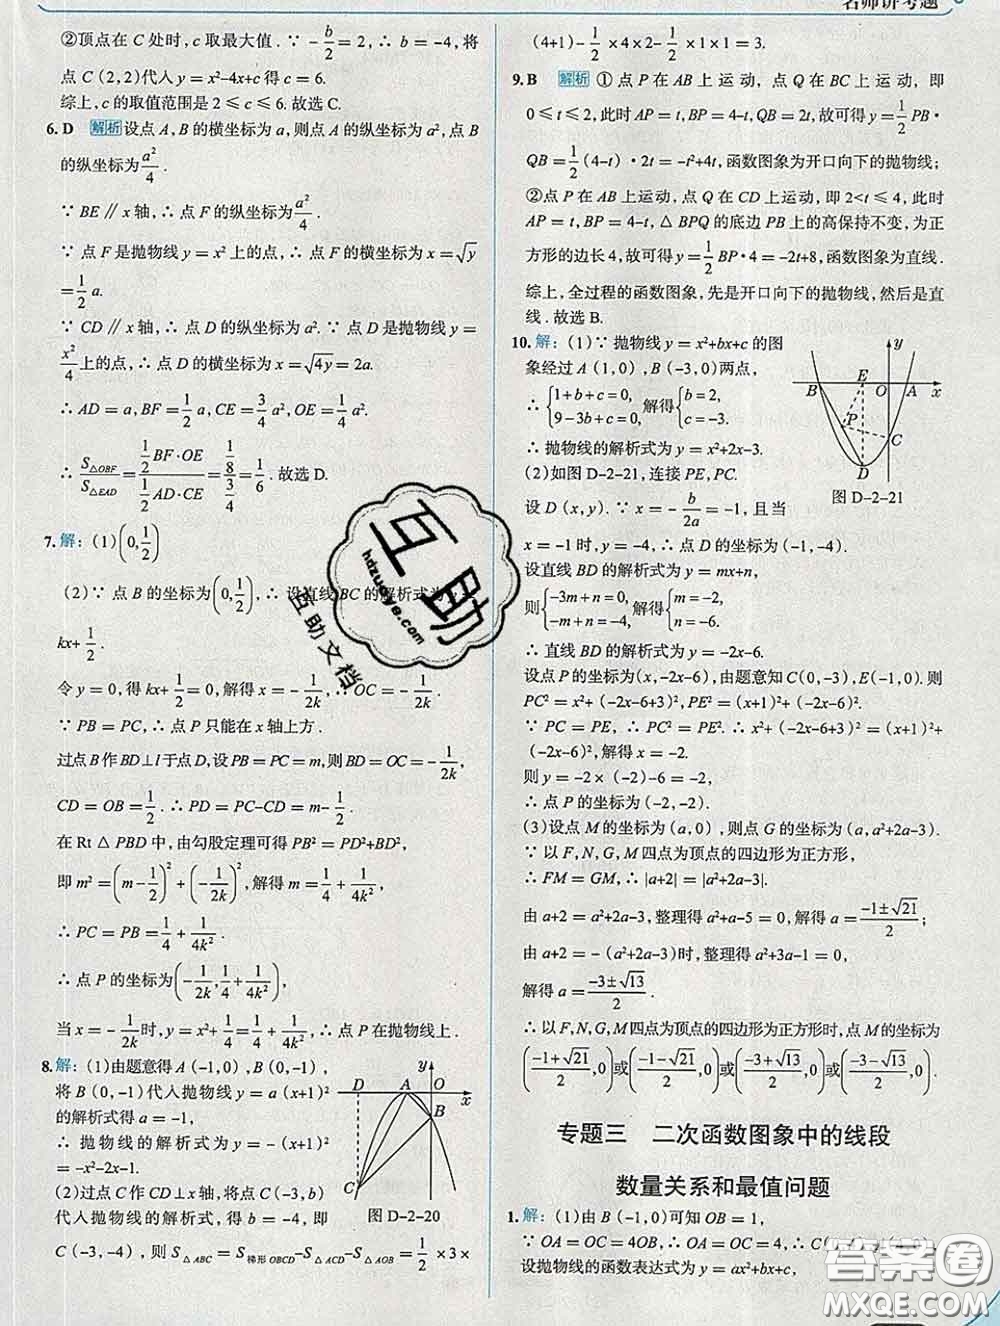 名师讲考题
②顶点在 C 处时, c 取最大值. ∵ -b/2=2, ∴ b=-4, 将
点 C (2,2)代入 y=x²-4x+c 得 c=6.
综上, c 的取值范围是 2≤c≤6. 故选 C.
6. D 解析 设点 A, B 的横坐标为 a, 则点 A 的纵坐标为 a², 点 B
的纵坐标为 a²/4.
∵ BE∥x 轴, ∴ 点 F 的纵坐标为 a²/4.
∵ 点 F 是抛物线 y=x² 上的点, ∴ 点 F 的横坐标为 x=√y
=1/2 a.
∵ CD∥x 轴, ∴ 点 D 的纵坐标为 a². ∵ 点 D 是抛物线 y=
x²/4 上的点, ∴ 点 D 的横坐标为 x=√4y=2a.
∴ AD=a, BF=1/2 a, CE=3/4 a², OE=1/4 a².
∴ S△OBF/S△EAD = (1/2 BF·OE)/(1/2 AD·CE) = (1/8)/(3/4) = 1/6. 故选 D.
7. 解: (1) (0, 1/2)
(2) ∵ 点 B 的坐标为 (0, 1/2), ∴ 设直线 BC 的解析式为 y=
kx+1/2.
令 y=0, 得 kx+1/2=0, 解得 x=-1/2k, ∴ OC=-1/2k.
∵ PB=PC, ∴ 点 P 只能在 x 轴上方.
过点 B 作 BD⊥l 于点 D, 设 PB=PC=m, 则 BD=OC=-1/2k,
CD=OB=1/2. ∴ PD=PC-CD=m-1/2.
在 Rt△PBD 中, 由勾股定理可得 PB²=PD²+BD²,
即 m²=(m-1/2)²+(-1/2k)², 解得 m=1/4+1/4k².
∴ PC=PB=1/4+1/4k².
∴ 点 P 的坐标为 (-1/2k, 1/4+1/4k²).
当 x=-1/2k 时, y=x²+1/4=1/4+1/4k², ∴ 点 P 在抛物线上.
8. 解: (1)由题意得 A (-1,0), B (0,-1),
将 B (0,-1)代入抛物线 y=a(x+1)²
的解析式得 a=-1,
∴ 抛物线的解析式为 y=-(x+1)²=
-x²-2x-1.
(2)过点 C 作 CD⊥x 轴, 将点 C(-3,b)
代入抛物线的解析式, 得 b=-4, 即
D A O x y B C
图 D-2-20
C (-3,-4), 则 S△ABC=S梯形OBCD-S△ACD-S△AOB=1/2×3×
(4+1)-1/2×4×2-1/2×1×1=3.
9. B 解析 ①点 P 在 AB 上运动, 点 Q 在 BC 上运动, 即
0≤t≤2, 此时 AP=t, BP=4-t, QB=2t, 故可得 y=1/2 PB·
QB=1/2(4-t)·2t=-t²+4t, 函数图象为开口向下的抛物线;
②点 P 在 AB 上运动, 点 Q 在 CD 上运动, 即 2<t≤4, 此时
AP=t, BP=4-t, △BPQ 的底边 PB 上的高保持不变, 为正
方形的边长 4, 故可得 y=1/2 BP·4=-2t+8, 函数图象为直线.
综上, 全过程的函数图象, 先是开口向下的抛物线, 然后是直
线. 故选 B.
10. 解: (1) ∵ 抛物线 y=x²+bx+c 的图
象经过 A (1,0), B (-3,0)两点,
∴ {1+b+c=0, 9-3b+c=0, 解得{b=2, c=-3.
∴ 抛物线的解析式为 y=x²+2x-3.
(2)如图 D-2-21, 连接 PE, PC.
设 D (x,y). ∵ x=-b/2a=-1, 且当
x=-1 时, y=-4, ∴ 点 D 的坐标为(-1,-4).
B E O A x y P C D
图 D-2-21
设直线 BD 的解析式为 y=mx+n,
则{-3m+n=0, -m+n=-4, 解得{m=-2, n=-6.
∴ 直线 BD 的解析式为 y=-2x-6.
设点 P 的坐标为(x,-2x-6), 由题意知 C(0,-3), E(-1,0). 则
PC²=x²+(-2x-6+3)², PE²=(x+1)²+(-2x-6)².
∵ PC=PE, ∴ PC²=PE². ∴ x²+(-2x-6+3)²=(x+1)²+
(-2x-6)², 解得 x=-2.
则 y=-2×(-2)-6=-2.
∴ 点 P 的坐标为(-2,-2).
(3)设点 M 的坐标为(a,0), 则点 G 的坐标为(a,a²+2a-3).
∵ 以 F,N,G,M 四点为顶点的四边形为正方形,
∴ FM=GM, ∴ |a+2|=|a²+2a-3|.
由 a+2=a²+2a-3, 整理得 a²+a-5=0, 解得 a=(-1±√21)/2;
由 a+2=-(a²+2a-3)时, 整理得 a²+3a-1=0,
解得 a=(-3±√13)/2.
∴ 以 F,N,G,M 四点为顶点的四边形为正方形时, 点 M 的坐标为
((-1+√21)/2,0)或((-1-√21)/2,0)或((-3+√13)/2,0)或((-3-√13)/2,0)
专题三 二次函数图象中的线段
数量关系和最值问题
1. 解: (1)由 B (-1,0)可知 OB=1,
∵ OA=OC=4OB, ∴ OA=OC=4, ∴
设抛物线的函数表达式为 y=ax²+bx+c,
互助
hdzuoye.com
互助文档
答案圈
MXQE.COM